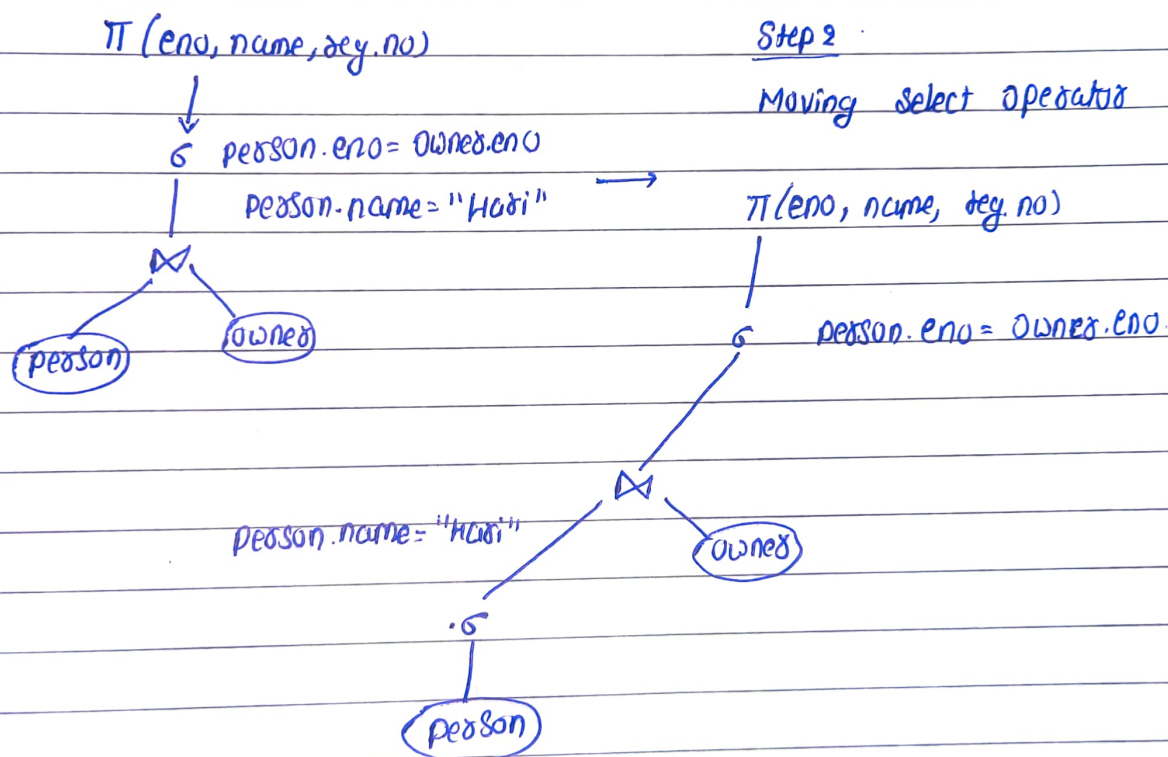 π (eno, name, reg.no)
σ person.eno = owner.eno
person.name = "Hari"
⋈
person
owner
→
Step 2
Moving select operator
π (eno, name, reg. no)
σ person. eno = owner. eno.
⋈
person.name = "Hari"
owner
.σ
person